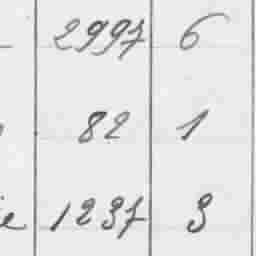 2997 6
82 1
1237 3